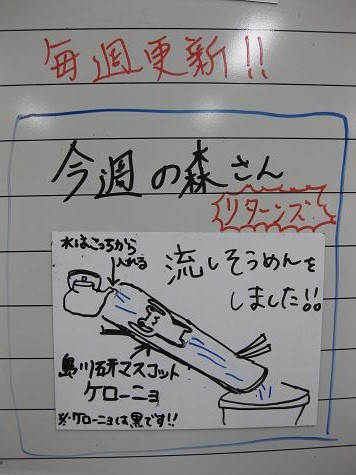 毎週更新!!
今週の森さん
リターンズ
水はこっちから
入れる
流しそうめんを
しました!!
島川研マスコット
ケローニョ
※ケローニョは黒です!!